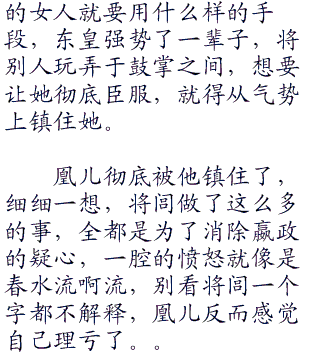 的女人就要用什么样的手
段，东皇强势了一辈子，将
别人玩弄于鼓掌之间，想要
让她彻底臣服，就得从气势
上镇住她。
凰儿彻底被他镇住了，
细细一想，将闾做了这么多
的事，全都是为了消除嬴政
的疑心，一腔的愤怒就像是
春水流啊流，别看将闾一个
字都不解释，凰儿反而感觉
自己理亏了。。